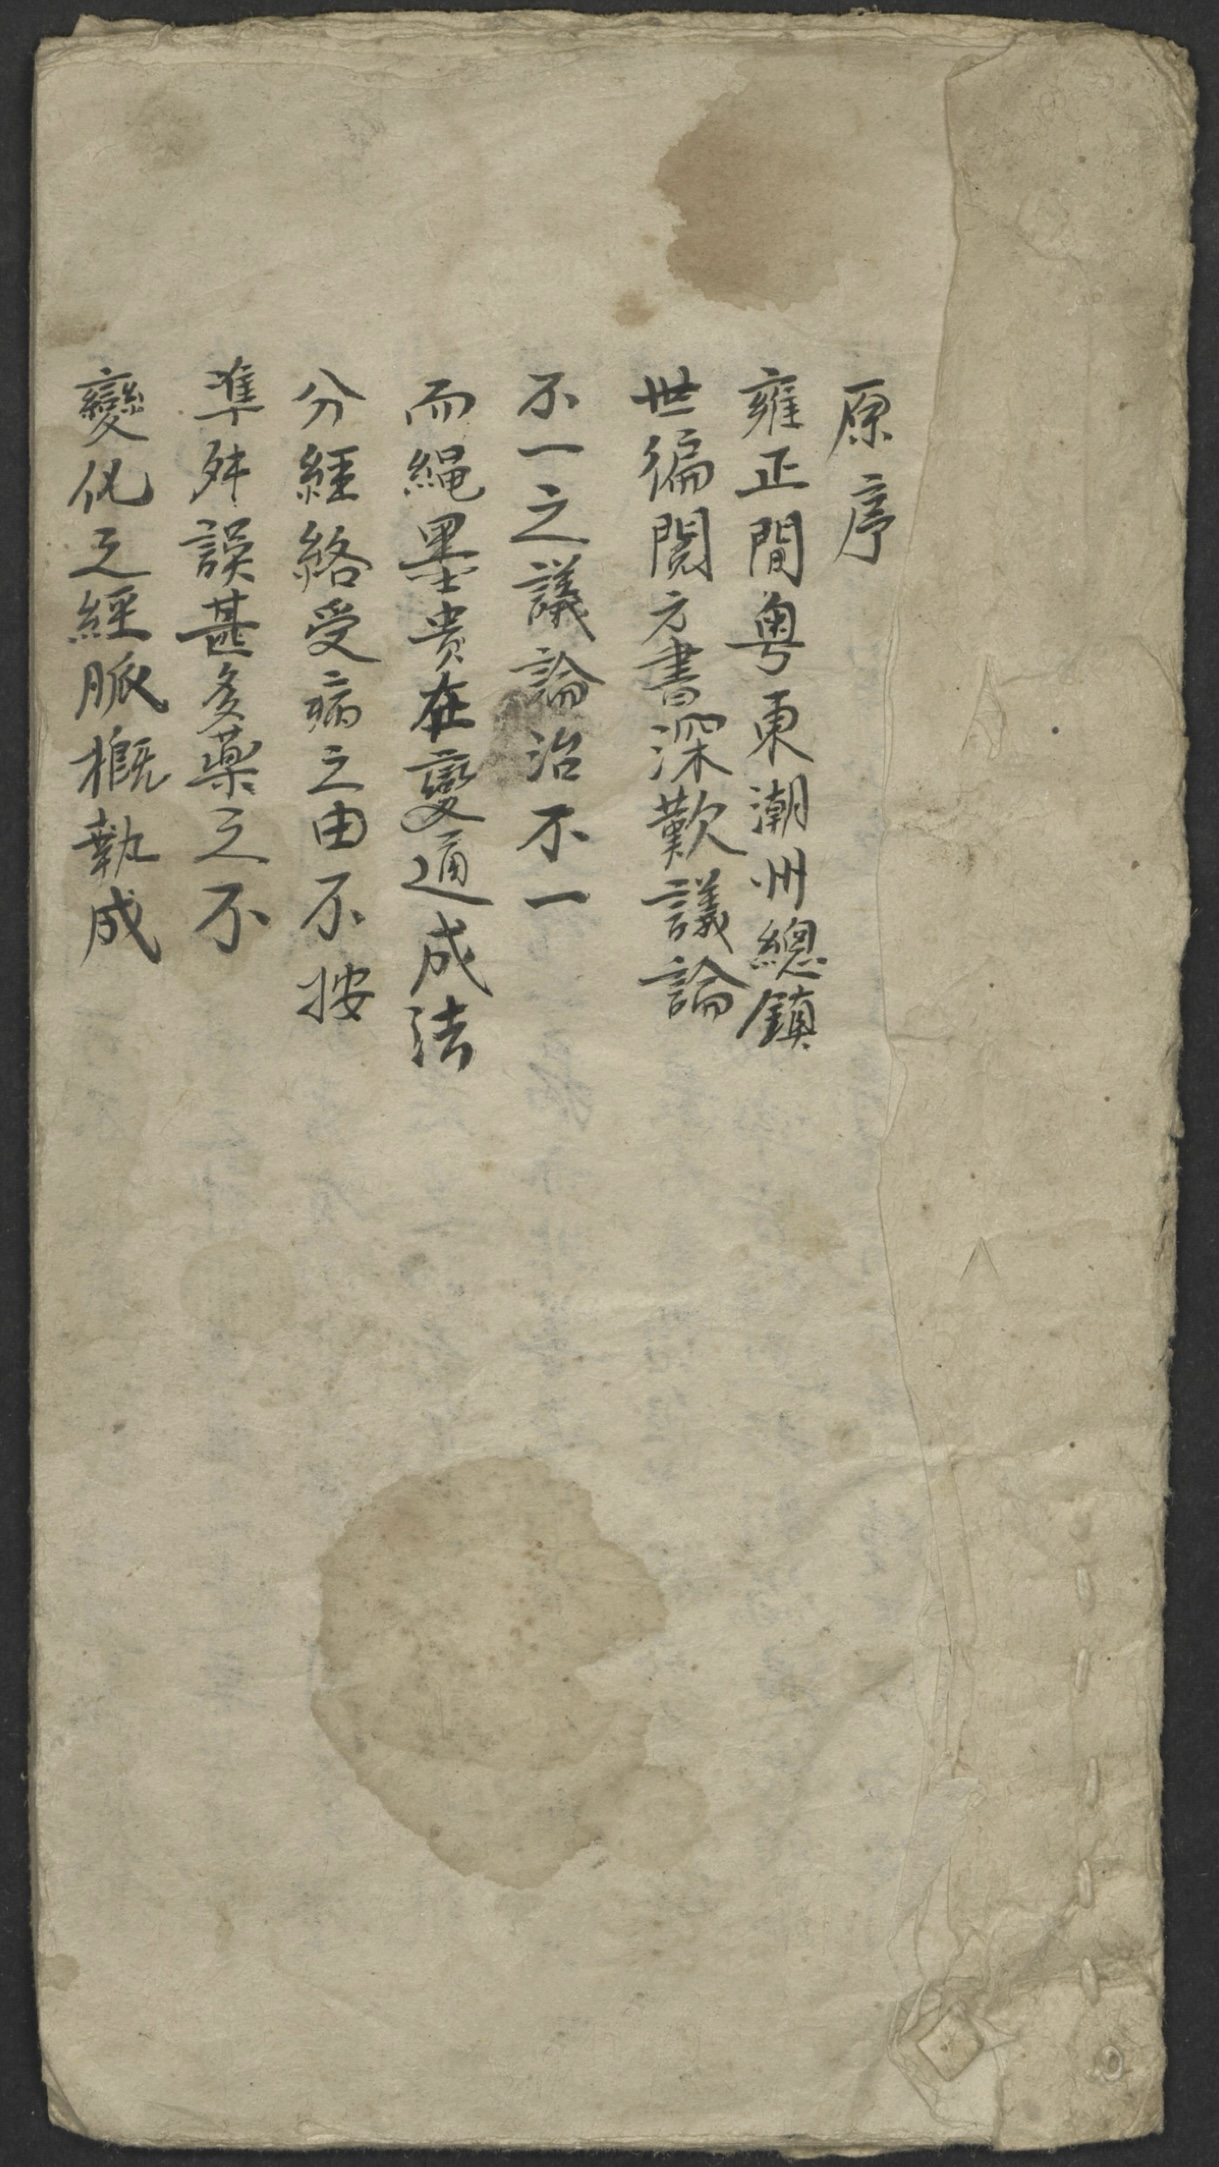 原序
雍正間粵東潮州總鎮
世徧閱方書深歎議論
不一之議論治不一
而繩墨貴在變通成法
分經絡受病之由不按
準舛誤甚多藥之不
變化之經脈概執成